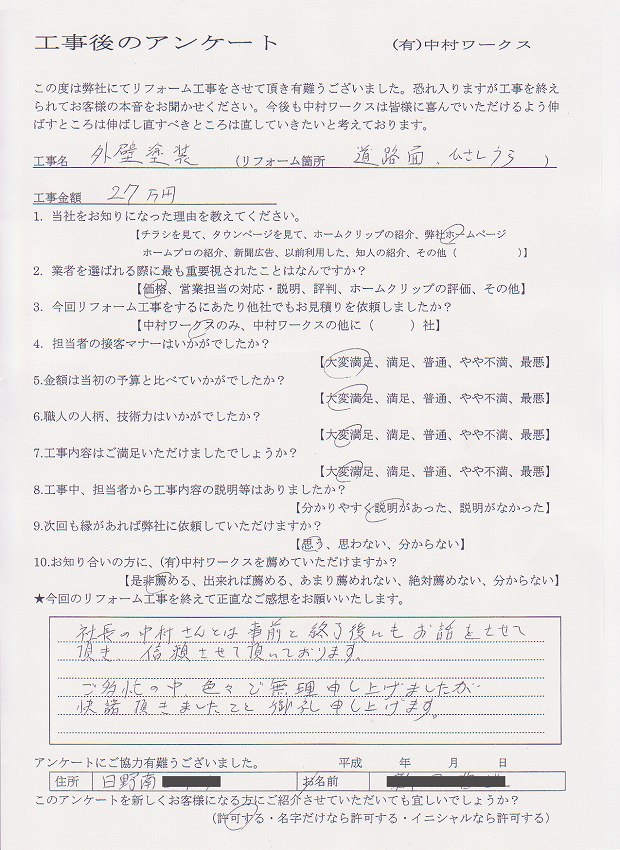 工事後のアンケート (有)中村ワークス
この度は弊社にてリフォーム工事をさせて頂き有難うございました。恐れ入りますが工事を終え
られてお客様の本音をお聞かせください。今後も中村ワークスは皆様に喜んでいただけるよう伸
ばすところは伸ばし直すべきところは直していきたいと考えております。
工事名 外壁塗装 (リフォーム箇所 道路面、ひさしうら )
工事金額 27万円
1. 当社をお知りになった理由を教えてください。
【チラシを見て、タウンページを見て、ホームクリップの紹介、弊社ホームページ
ホームプロの紹介、新聞広告、以前利用した、知人の紹介、その他( )】
2. 業者を選ばれる際に最も重要視されたことはなんですか?
【価格、営業担当の対応・説明、評判、ホームクリップの評価、その他】
3. 今回リフォーム工事をするにあたり他社でもお見積りを依頼しましたか?
【中村ワークスのみ、中村ワークスの他に( )社】
4. 担当者の接客マナーはいかがでしたか?
【大変満足、満足、普通、やや不満、最悪】
5.金額は当初の予算と比べていかがでしたか?
【大変満足、満足、普通、やや不満、最悪】
6.職人の人柄、技術力はいかがでしたか?
【大変満足、満足、普通、やや不満、最悪】
7.工事内容はご満足いただけましたでしょうか?
【大変満足、満足、普通、やや不満、最悪】
8.工事中、担当者から工事内容の説明等はありましたか?
【分かりやすく説明があった、説明がなかった】
9.次回も縁があれば弊社に依頼していただけますか?
【思う、思わない、分からない】
10.お知り合いの方に、(有)中村ワークスを薦めていただけますか?
【是非薦める、出来れば薦める、あまり薦めれない、絶対薦めない、分からない】
★今回のリフォーム工事を終えて正直なご感想をお願いいたします。
社長の中村さんとは事前と終了後にもお話をさせて
頂き、信頼させて頂いております。
ご多忙の中、色々ご無理申し上げましたが
快諾頂きましたこと御礼申し上げます。
アンケートにご協力有難うございました。 平成 年 月 日
住所 日野南 お名前
このアンケートを新しくお客様になる方にご紹介させていただいても宜しいでしょうか?
(許可する・名字だけなら許可する・イニシャルなら許可する)